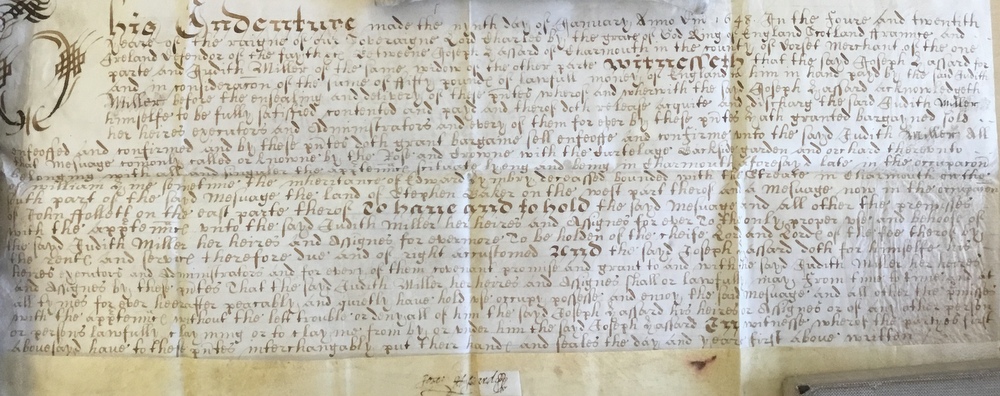 his Indenture made the ninth day of January Anno Dni 1648 In the foure and twentith
yeare of the raigne of our Soveraigne Lord Charles by the grace of God King of England Scotland ffrannce and
Ireland Defendor of the fayth &c Betweene Joseph Hassard of Charmouth in the county of Dorset Merchant of the one
parte and Judith Miller of the same widow of the other parte Witnesseth that the said Joseph Hassard for
and in consideracon of the some of ffifty pounds of lawfull money of England to him in hand payd by the said Judith
Miller before the ensealing and delivery of these pntes wherof and wherwith the said Joseph Hassard acknowledgeth
himselfe to be fully satisfied contented and payd and therof doth release acquite and discharg the said Judith Miller
her heires executors and Administrators and every of them for ever by these pntes hath granted bargayned sold
enfeoffed and confirmed and by these pntes doth grant bargaine sell enfeoffe and confirme unto the sayd Judith Miller All
that Mesuage comonly called or knowne by the Rose and Crowne with the Curtelage Backside garden and orchard thereunto
belonging with all and singuler the apptences lying and being in Charmouth aforesayd late in the occupacon
of William sometime the inheritance of deceased bounded with the Streate in Charmouth on the
south part of the said Mesuage the land of Stephen on the west part therof and a Mesuage now in the occupacon
of John ffollett on the east parte therof To have and to hold the said Mesuage and all other the premisses
with the apptences unto the sayd Judith Miller her heires and Assignes for ever To the only proper use and behoofe of
the sayd Judith Miller her heires and Assignes for evermore To be holden of the cheife Lord and Lords of the fee therof by
the rents and services therefore due and of right accustomed And the said Joseph Hassard doth for himselfe his
heires executors and Administrators and for every of them covenant promise and grant to and with the said Judith Miller her heires
and Assignes by these pntes That the said Judith Miller her heires and Assignes shall or lawfully may from time to time and at
all tymes for ever hereafter peacably and quietly have hold use occupy possesse and enjoy the said Mesuage and all other the premisses
with the apptences without the lett trouble or denyall of him the said Joseph Hassard his heires or Assignes or of any other person
or persons lawfully clayming or to clayme from by or under him the said Joseph Hassard In witnesse wherof the partyes first
abovesayd have to these pntes interchangably put their hands and seales the day and yeare first above written